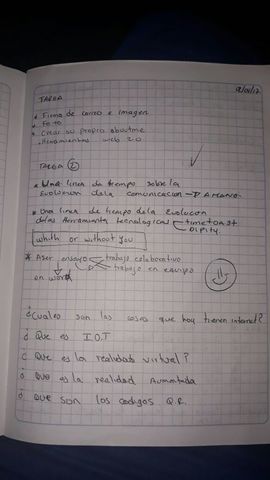 19/01/17
TAREA
* Firma de correo e imagen
* Foto
* Crear su propio aboutme
. Herramientas web 2.0
TAREA ②
* Una linea de tiempo sobre la
Evolucion dela comunicacion → A mano.
* Una linea de tiempo dela Evolucion
delas Herramienta tecnologicas timetoast
DIPITY.
whith or without you
* Aser ensayo trabajo colaborativo
trabajo en equipo
en word
¿Cuales son las cosas que hoy tienen internet?
¿ Que es I.O.T
¿ Que es la realidad virtual?
¿ Que es la realidad Aumentada
¿ Que son los codigos Q.R.